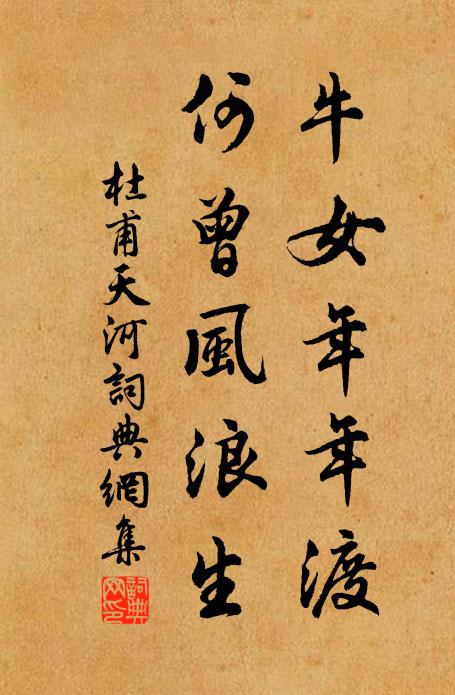 牛女年年渡
何曾風浪生
杜甫天河詞典網集
詞典網印